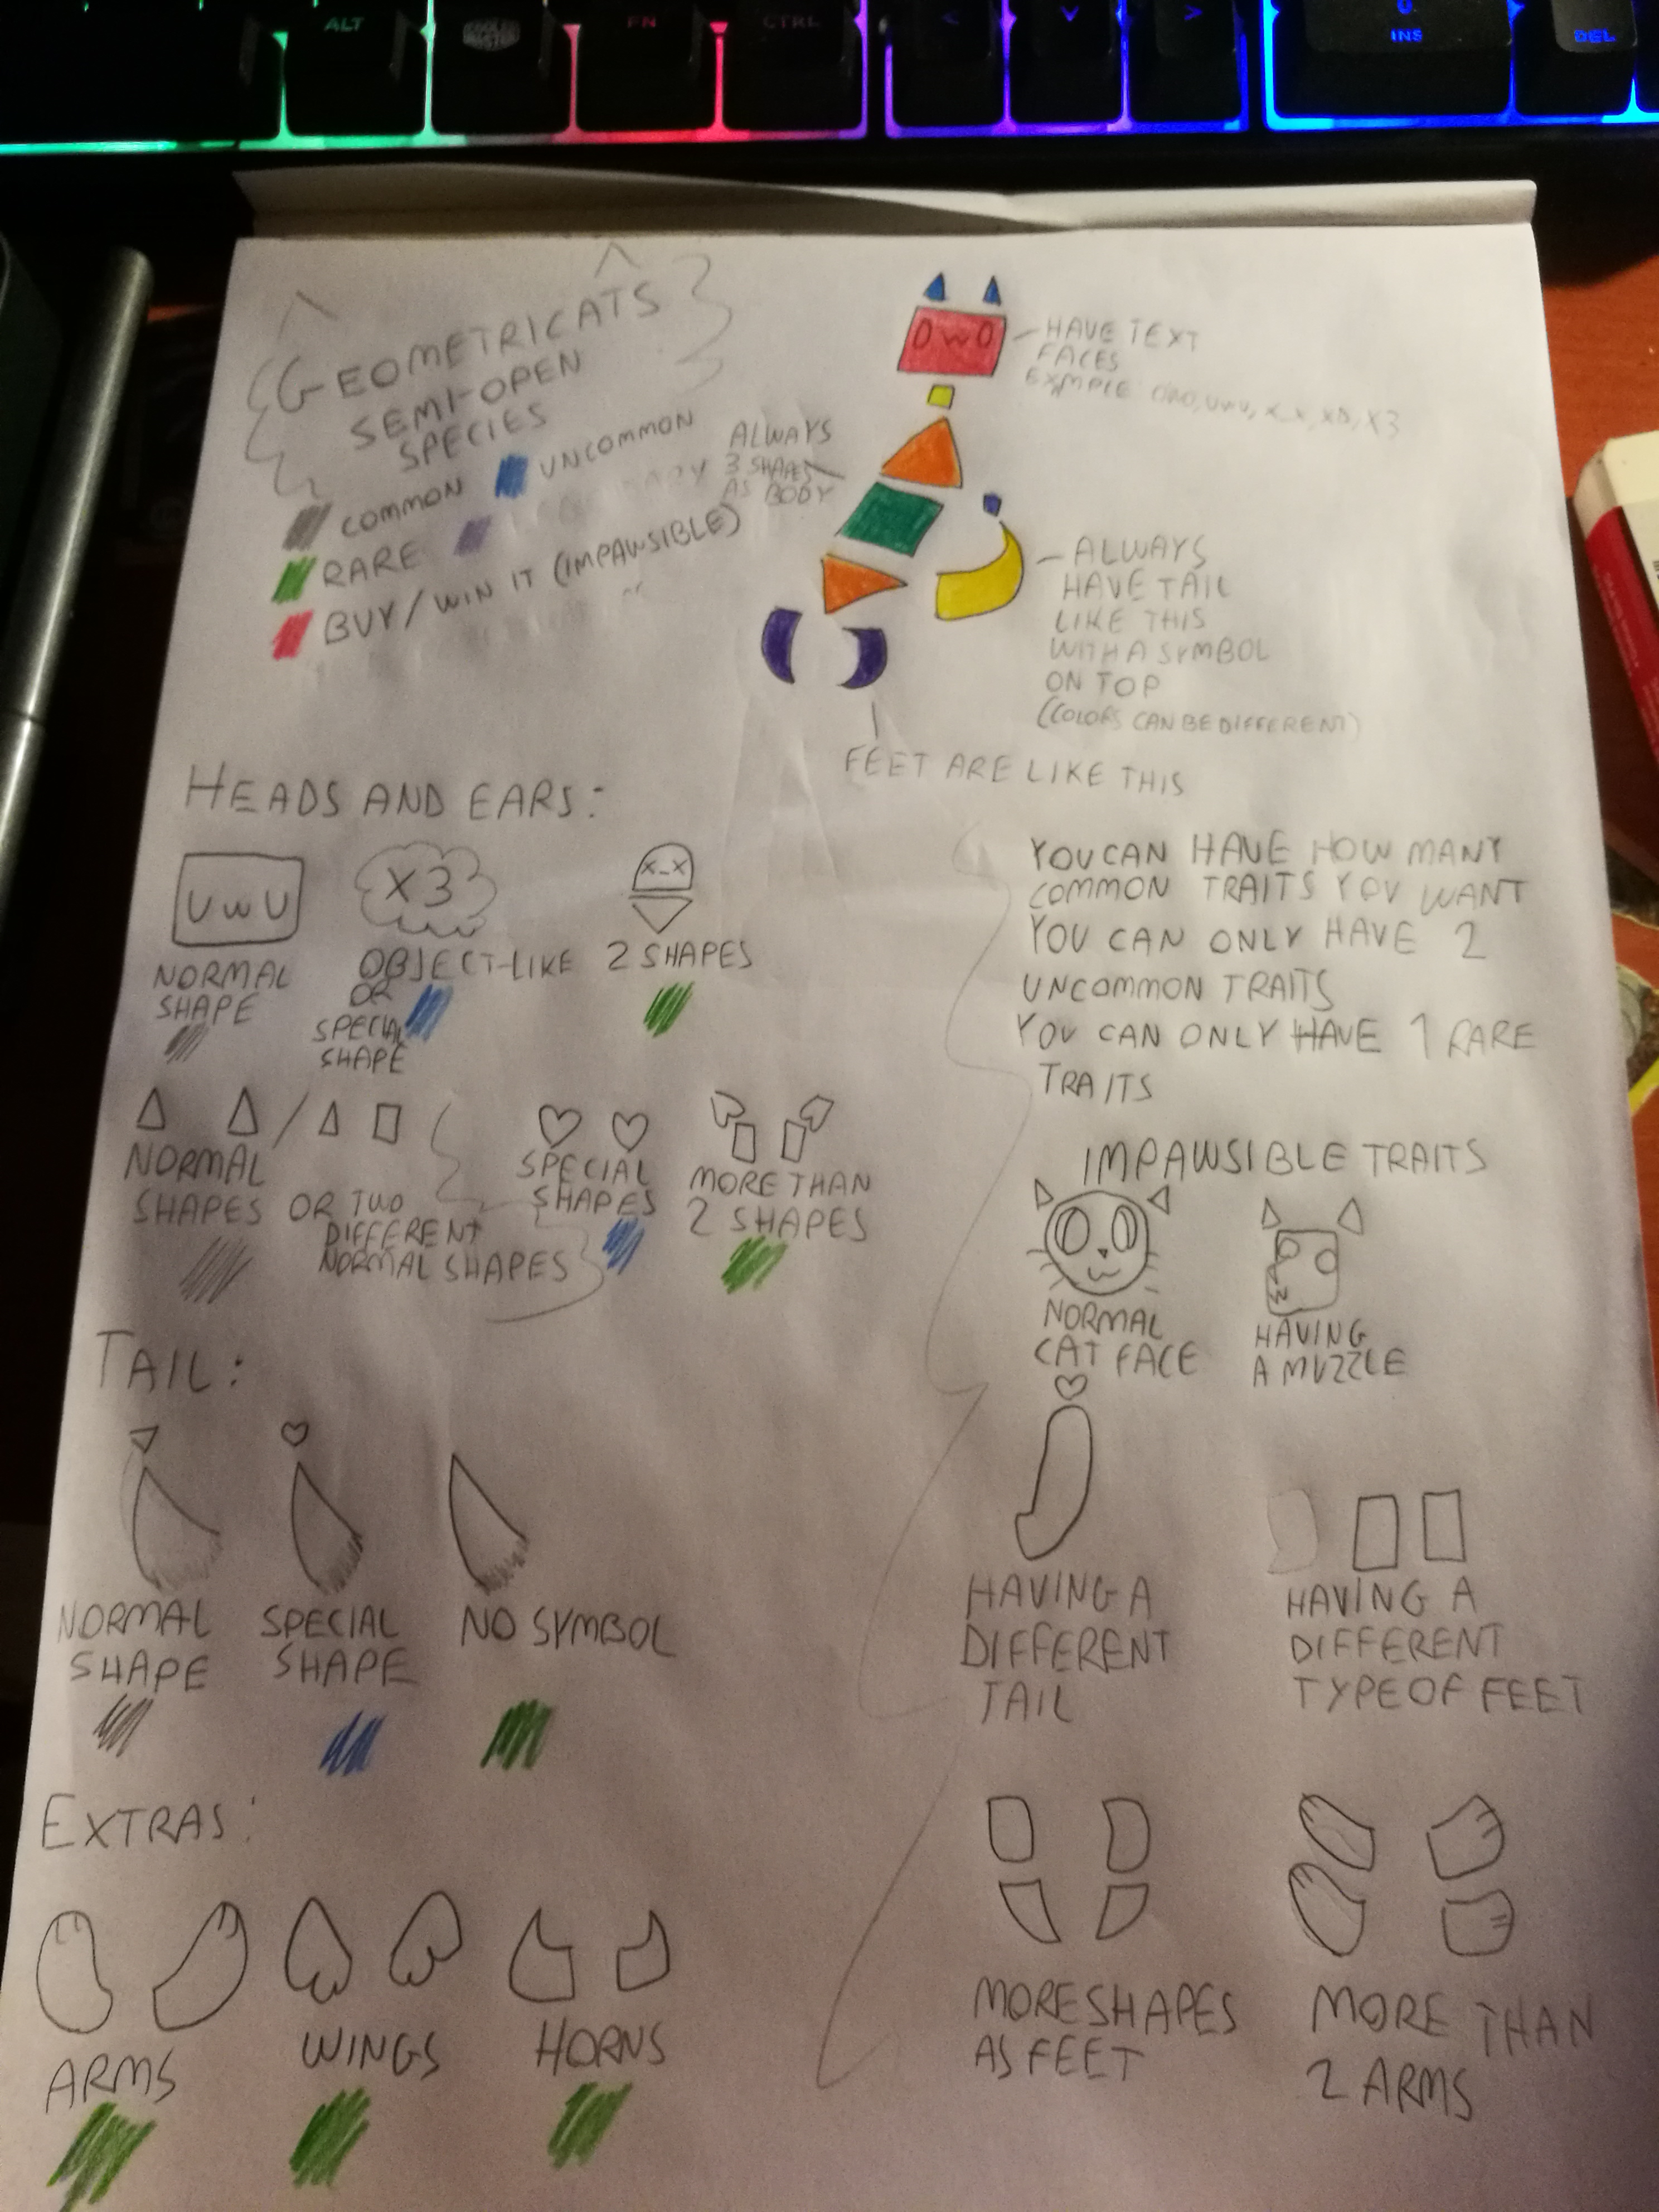 ALT
COOLER MASTER
FN
CTRL
<
>
0
INS
DEL
GEOMETRICATS
SEMI-OPEN
SPECIES
COMMON
UNCOMMON
RARE
BUY/WIN IT (IMPAWSIBLE)
OWO
HAVE TEXT
FACES
EXMPLE OWO, UWU, X_X, XD, X3
ALWAYS
3 SHAPES
AS BODY
ALWAYS
HAVE TAIL
LIKE THIS
WITH A SYMBOL
ON TOP
(COLORS CAN BE DIFFERENT)
FEET ARE LIKE THIS
HEADS AND EARS:
UWU
X3
X_X
NORMAL
SHAPE
OBJECT-LIKE
OR
SPECIAL
SHAPE
2 SHAPES
NORMAL
SHAPES OR TWO
DIFFERENT
NORMAL SHAPES
SPECIAL
SHAPES
MORE THAN
2 SHAPES
TAIL:
NORMAL
SHAPE
SPECIAL
SHAPE
NO SYMBOL
EXTRAS:
ARMS
WINGS
HORNS
YOU CAN HAVE HOW MANY
COMMON TRAITS YOU WANT
YOU CAN ONLY HAVE 2
UNCOMMON TRAITS
YOU CAN ONLY HAVE 1 RARE
TRAITS
IMPAWSIBLE TRAITS
NORMAL
CAT FACE
HAVING
A MUZZLE
HAVING A
DIFFERENT
TAIL
HAVING A
DIFFERENT
TYPE OF FEET
MORE SHAPES
AS FEET
MORE THAN
2 ARMS